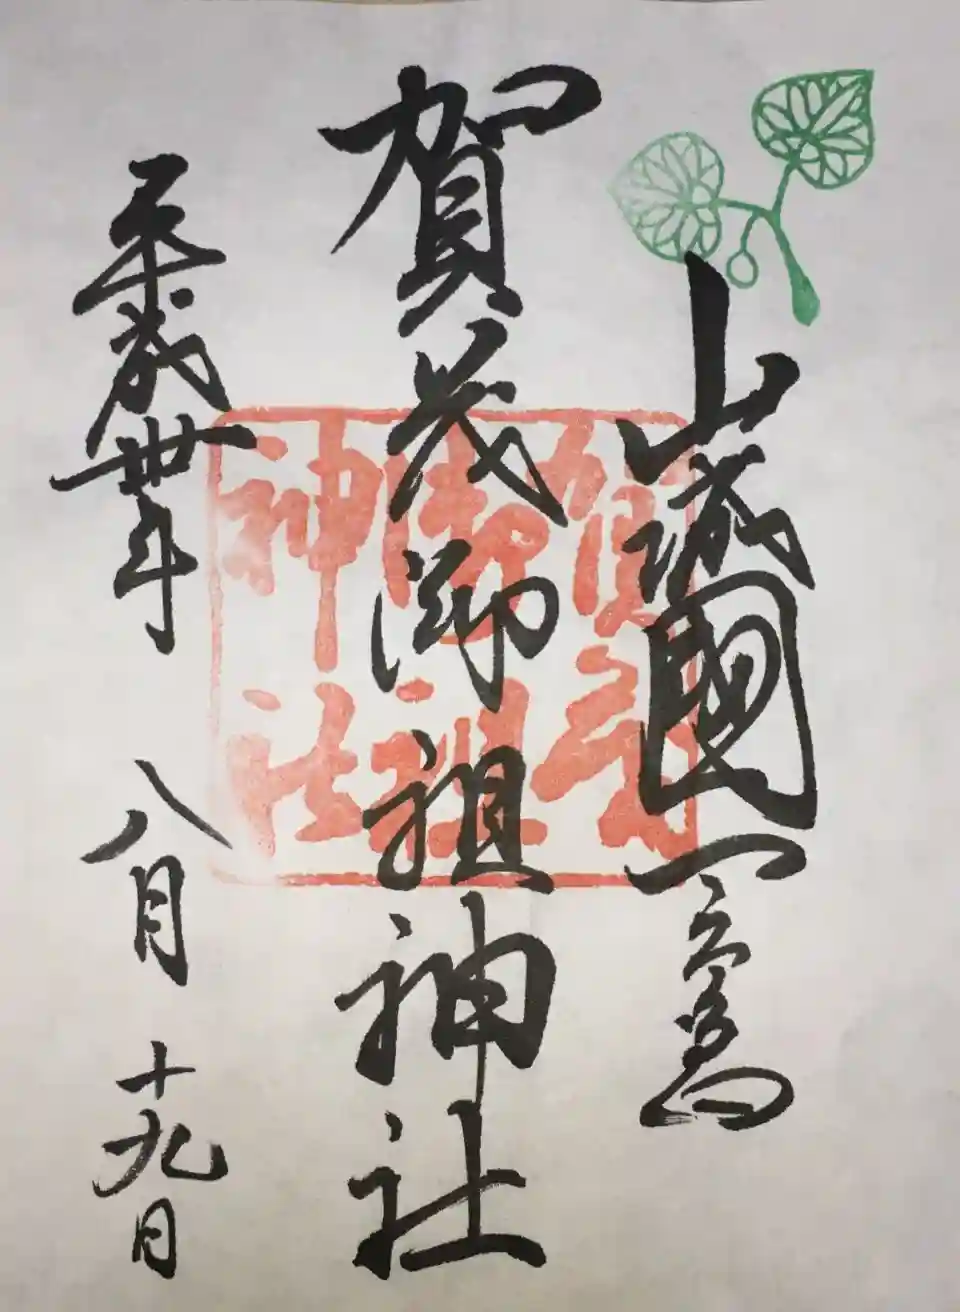 山城國一宮
賀茂御祖神社
平成卅年 八月 十九日
賀茂
御祖
神社